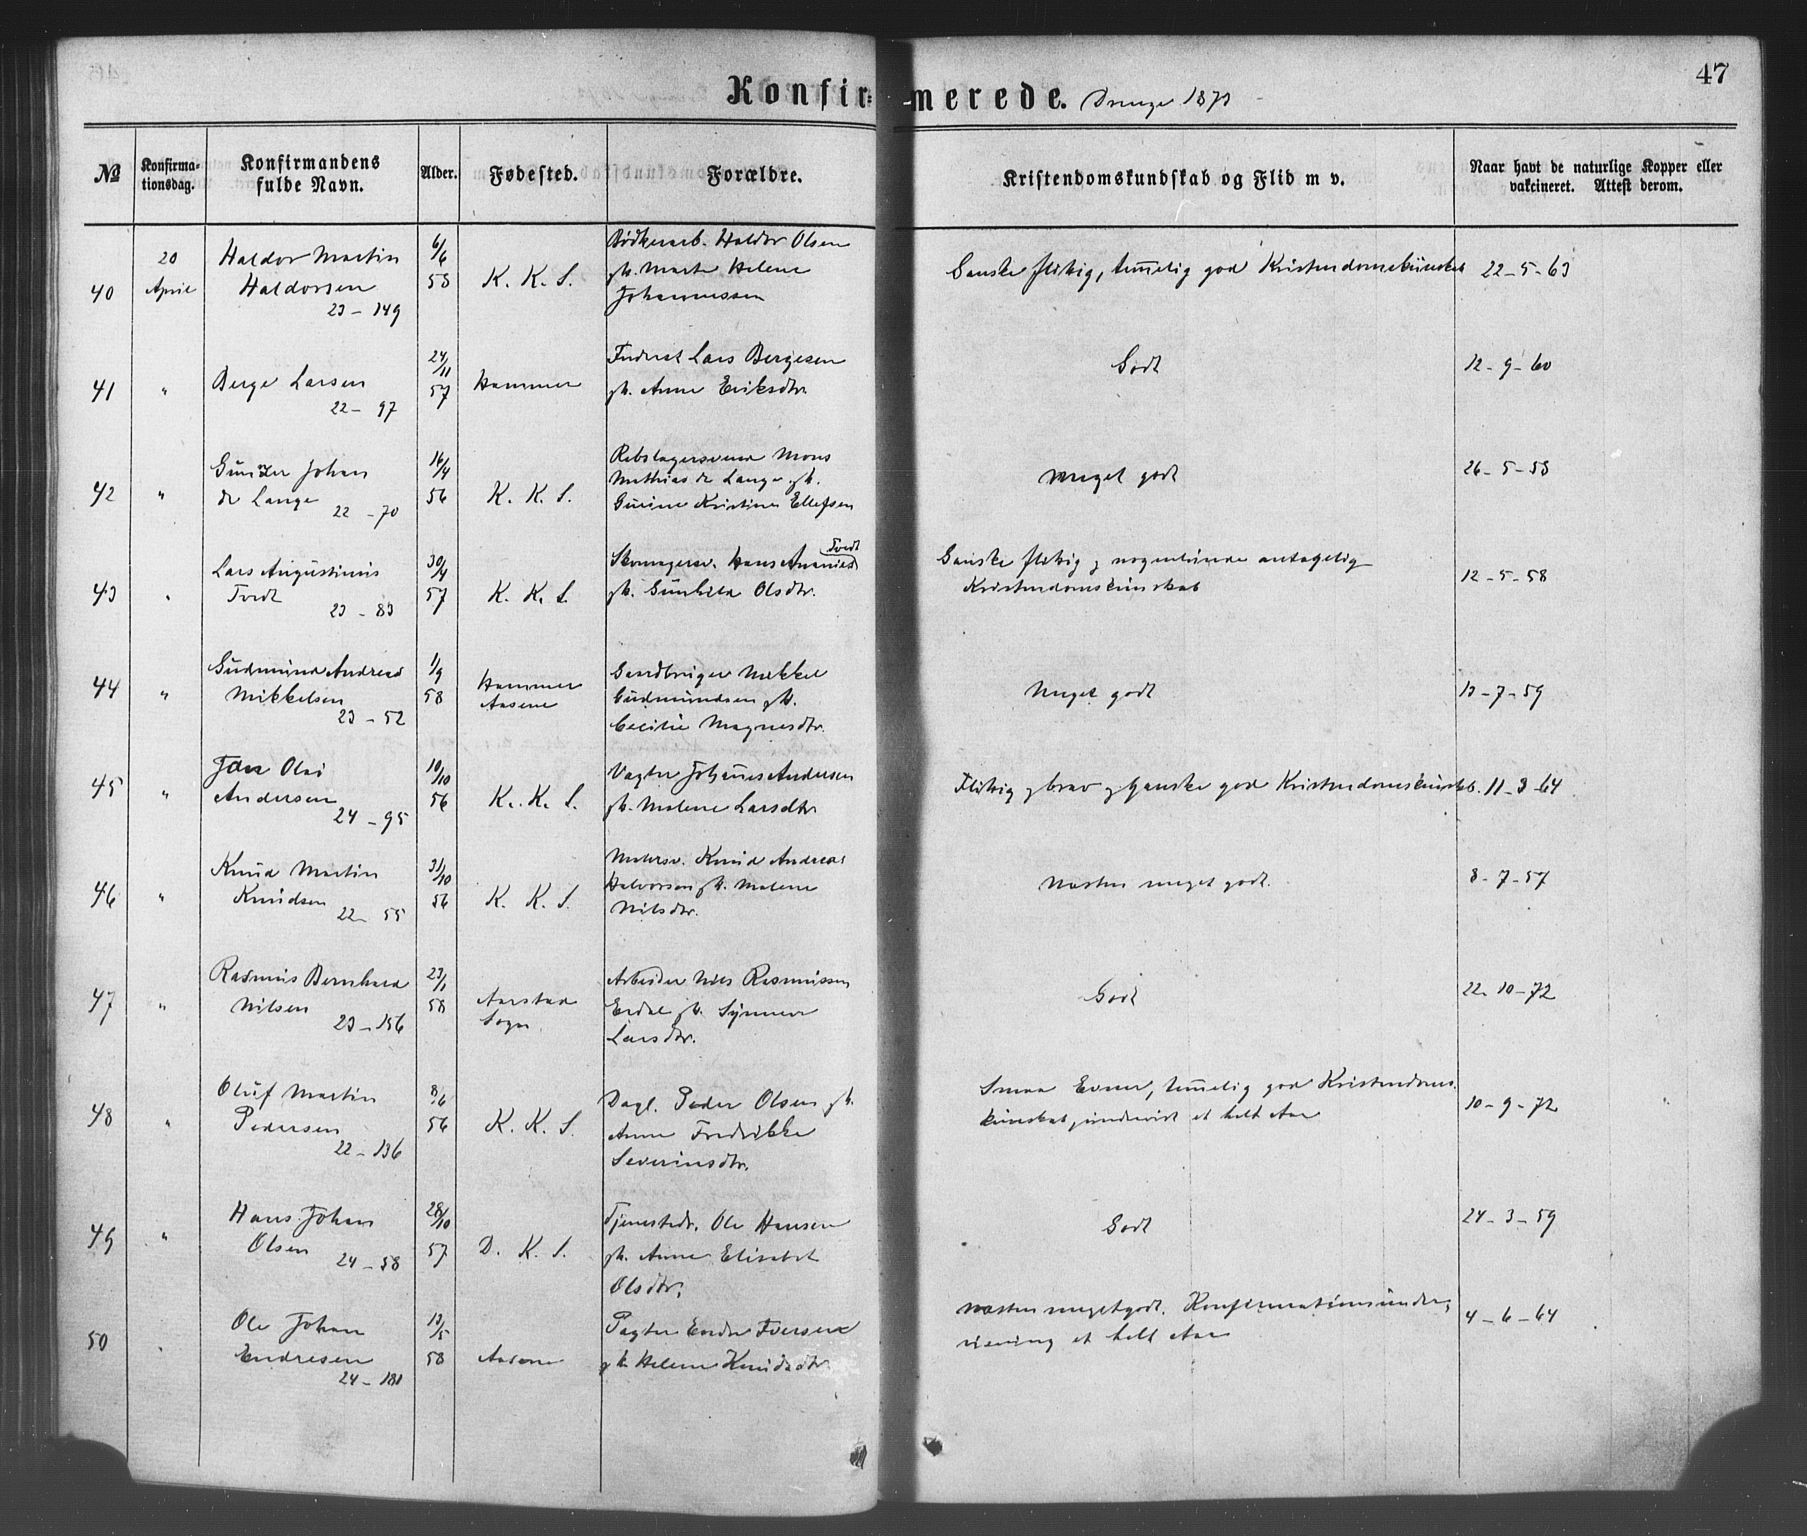 47
Konfirmerede. Drenge 1873
No
Konfirma-
tionsdag.
Konfirmandens
fulde Navn.
Alder.
Fødested.
Forældre.
Kristendomskundskab og Flid m v.
Naar havt de naturlige Kopper eller
vakcineret. Attest derom.
40
20
April
Haldor Martin
Haldorsen
23 - 149
6/6
58
K. K. S.
Bødkerarb. Haldor Olsen
gh. Marte Helene
Johannessen
Ganske flittig, temmelig god Kristendomskundsk.
22 - 5 - 63
41
"
Berge Larsen
22 - 97
24/11
57
Hammer
Inderst Lars Bergesen
gh. Anne Eriksdtr.
Godt
12 - 9 - 60
42
"
Johan
de Lange
22 - 70
16/4
56
K. K. S.
Rebslagersvend Mons
Mathias de Lange gh.
Kristine Ellefsen
Meget godt
26 - 5 - 58
43
"
Lars Augustinus
Tvedt
23 - 83
30/4
57
K. K. S.
Skomagersv. Hans Ananias Tvedt
gh. Gunhild Olsdtr.
Ganske flittig og nogenlunde antagelig
Kristendomskundskab
12 - 5 - 58
44
"
Gudmund Andreas
Mikkelsen
23 - 52
1/9
58
Hammer
Aasene
Gaardbruger Mikkel
Gudmundsen gh.
Cecilie Magnesdtr.
Meget godt
13 - 7 - 59
45
"
Olai
Andersen
24 - 95
10/10
56
K. K. S.
Vægter Johannes Andersen
gh. Malene Larsdtr.
Flittig og brav og ganske god Kristendomskundsk.
11 - 3 - 64
46
"
Knud Martin
Knudsen
22 - 55
31/10
56
K. K. S.
Malersv. Knud Andreas
Halvorsen gh. Malene
Nilsdtr.
Næsten meget godt.
8 - 7 - 57
47
"
Rasmus Bernhard
Nilsen
23 - 156
23/1
58
Aarstad
Sogn.
Arbeider Nils Rasmussen
Erdal gh. Synneve
Larsdtr.
Godt
22 - 10 - 72
48
"
Oluf Martin
Pedersen
22 - 136
8/6
56
K. K. S.
Dagl. Peder Olsen gh.
Anne Fredrikke
Severinsdtr.
Smaa Evner, temmelig god Kristendoms-
kundskab, undervist et helt Aar
10 - 9 - 72
49
"
Hans Johan
Olsen
24 - 58
28/10
57
D. K. S.
Tjenestedr. Ole Hansen
gh. Anne Elisabet
Olsdtr.
Godt
24 - 3 - 59
50
"
Ole Johan
Endresen
24 - 181
13/5
58
Aasene
Pagter Endre Iversen
gh. Helene Knudsdtr.
Næsten meget godt. Konfirmationsunder-
visning et helt Aar
4 - 6 - 64